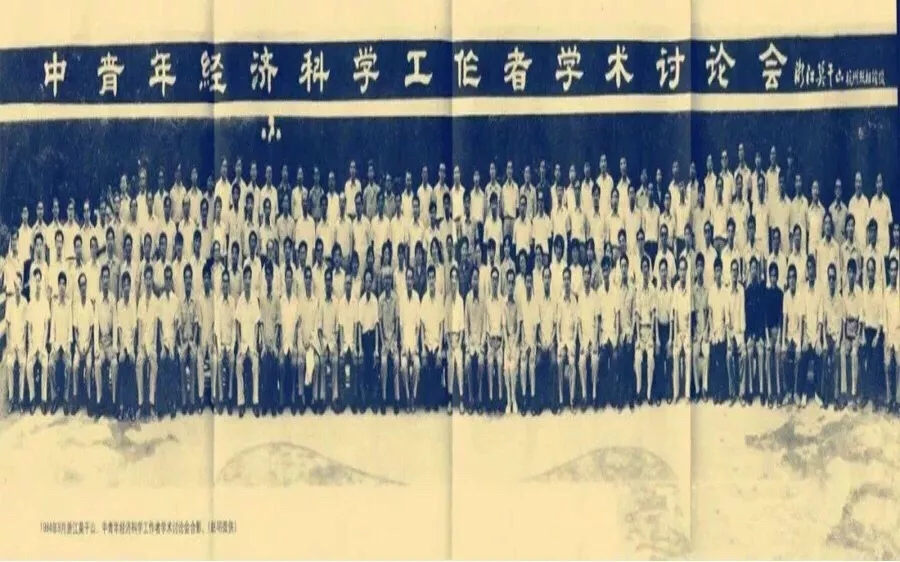 中青年经济科学工作者学术讨论会 浙江莫干山
1984年9月浙江莫干山，中青年经济科学工作者学术讨论会合影。